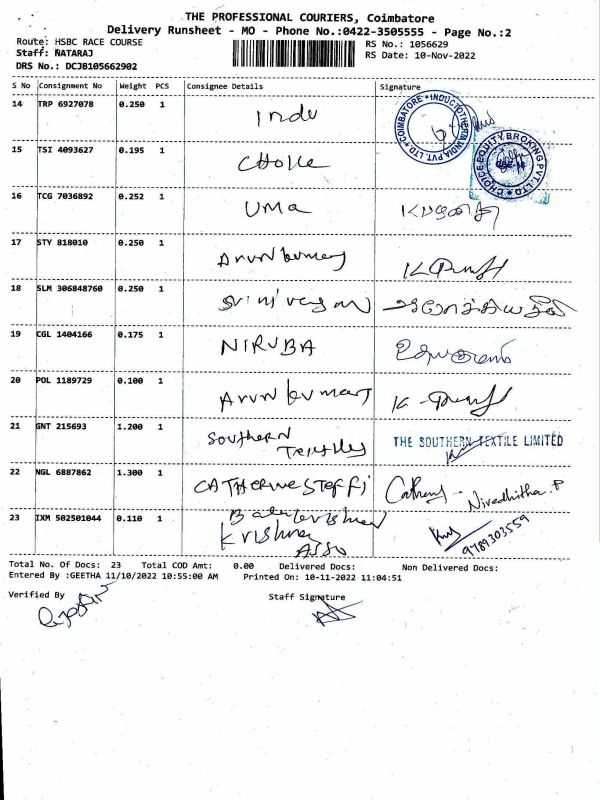 THE PROFESSIONAL COURIERS, Coimbatore
Delivery Runsheet - MO - Phone No.:0422-3505555 - Page No.:2
Route: HSBC RACE COURSE
RS No.: 1056629
Staff: NATARAJ
RS Date: 10-Nov-2022
DRS No.: DCJB105662902
S No Consignment No Weight PCS Consignee Details Signature
14 TRP 6927078 0.250 1 Indu
COIMBATORE * INDUCTOTHERM INDIA PVT. LTD
15 TSI 4093627 0.195 1
CHOICE EQUITY BROKING PVT. LTD
16 TCG 7036892 0.252 1 UMA
17 STY 818010 0.250 1 Arun kumar
18 SLM 306848760 0.250 1
19 CGL 1404166 0.175 1 NIRUBA
20 POL 1189729 0.100 1 Arun kumar
21 GNT 215693 1.200 1 Southern THE SOUTHERN TEXTILE LIMITED
22 NGL 6887862 1.300 1 CATHERINE STEFFI Nivedhitha. P
23 IXM 502501044 0.110 1
Krishna
Asso
9789303559
Total No. Of Docs: 23 Total COD Amt: 0.00 Delivered Docs: Non Delivered Docs:
Entered By :GEETHA 11/10/2022 10:55:00 AM Printed On: 10-11-2022 11:04:51
Verified By Staff Signature